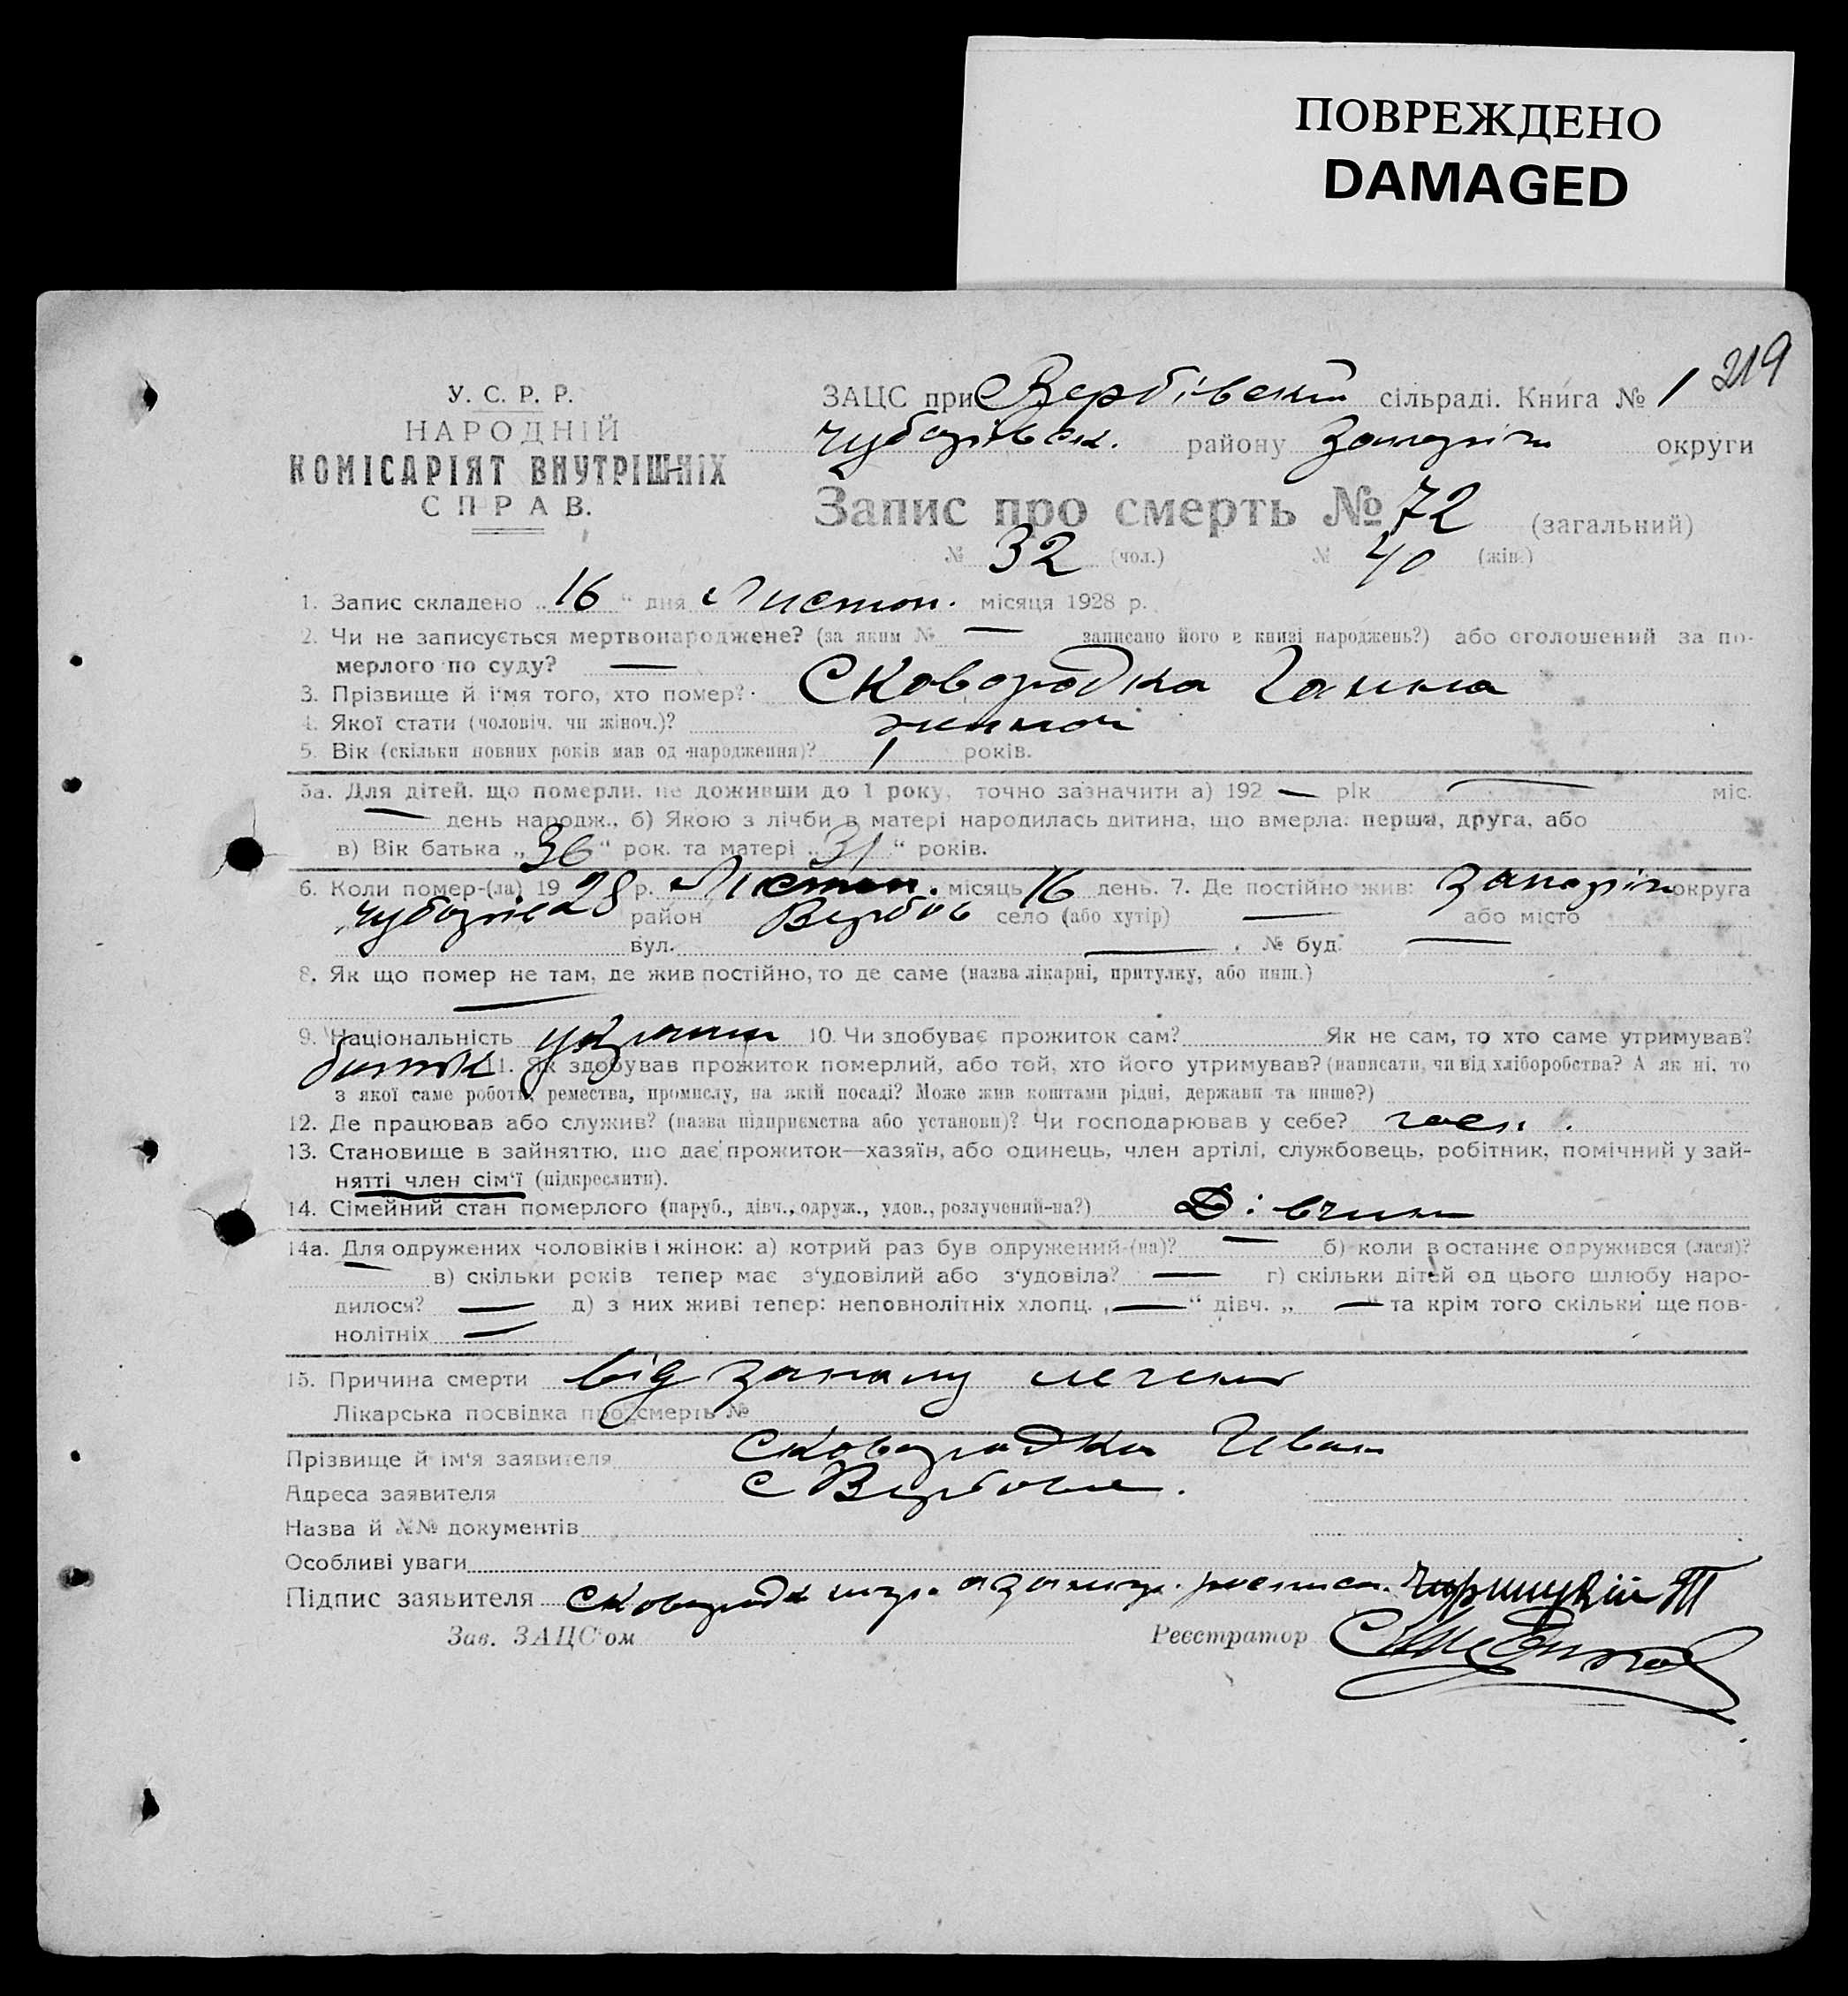 ПОВРЕЖДЕНО
DAMAGED
219
У. С. Р. Р.
НАРОДНІЙ
КОМІСАРІЯТ ВНУТРІШНІХ
СПРАВ.
ЗАЦС при Вербівській сільраді. Книга № 1
Чубарівськ. району Запоріж округи
Запис про смерть № 72 (загальний)
№ 32 (чол.) № 40 (жін.)
1. Запис складено „ 16 “ дня Листоп. місяця 1928 р.
2. Чи не записується мертвонароджене? (за яким № — записано його в книзі народжень?) або оголошений за по-
мерлого по суду? —
3. Прізвище й ім'я того, хто помер? Сковородка Ганна
4. Якої стати (чоловіч. чи жіноч.)? жиночі
5. Вік (скільки повних років мав од народження)? 1 років.
5а. Для дітей, що померли, не доживши до 1 року, точно зазначити а) 192 — рік — міс.
— день народж., б) Якою з лічби в матері народилась дитина, що вмерла: перша, друга, або
в) Вік батька „ 36 “ рок. та матері „ 31 “ років.
6. Коли помер-(ла) 19 28 р. Листоп. місяць 16 день. 7. Де постійно жив: Запоріж округа
Чубарівс район Вербов село (або хутір) — або місто
вул. — . № буд. —
8. Як що помер не там, де жив постійно, то де саме (назва лікарні, притулку, або инш.)
—
9. Національність україн 10. Чи здобуває прожиток сам? Як не сам, то хто саме утримував?
батьк 11. Як здобував прожиток померлий, або той, хто його утримував? (написати, чи від хліборобства? А як ні, то
з якої саме роботи, ремества, промислу, на якій посаді? Може жив коштами рідні, держави та инше?)
12. Де працював або служив? (назва підприємства або установи)? Чи господарював у себе? госп.
13. Становище в зайняттю, що дає прожиток—хазяїн, або одинець, член артілі, службовець, робітник, помічний у зай-
нятті член сім'ї (підкреслити).
14. Сімейний стан померлого (паруб., дівч., одруж., удов., розлучений-на?) Дівчина
14а. Для одружених чоловіків і жінок: а) котрий раз був одружений-(на)? — б) коли в останнє одружився (лася)?
— в) скільки років тепер має з'удовілий або з'удовіла? — г) скільки дітей од цього шлюбу наро-
дилося? — д) з них живі тепер: неповнолітніх хлопц. „ — “ дівч. „ — “ та крім того скільки ще пов-
нолітніх —
15. Причина смерти від запалу легень
Лікарська посвідка про смерть №
Прізвище й ім'я заявителя Сковородка Иван
Адреса заявителя с Вербове.
Назва й №№ документів
Особливі уваги
Підпис заявителя Сковородка
Зав. ЗАЦС'ом Реєстратор